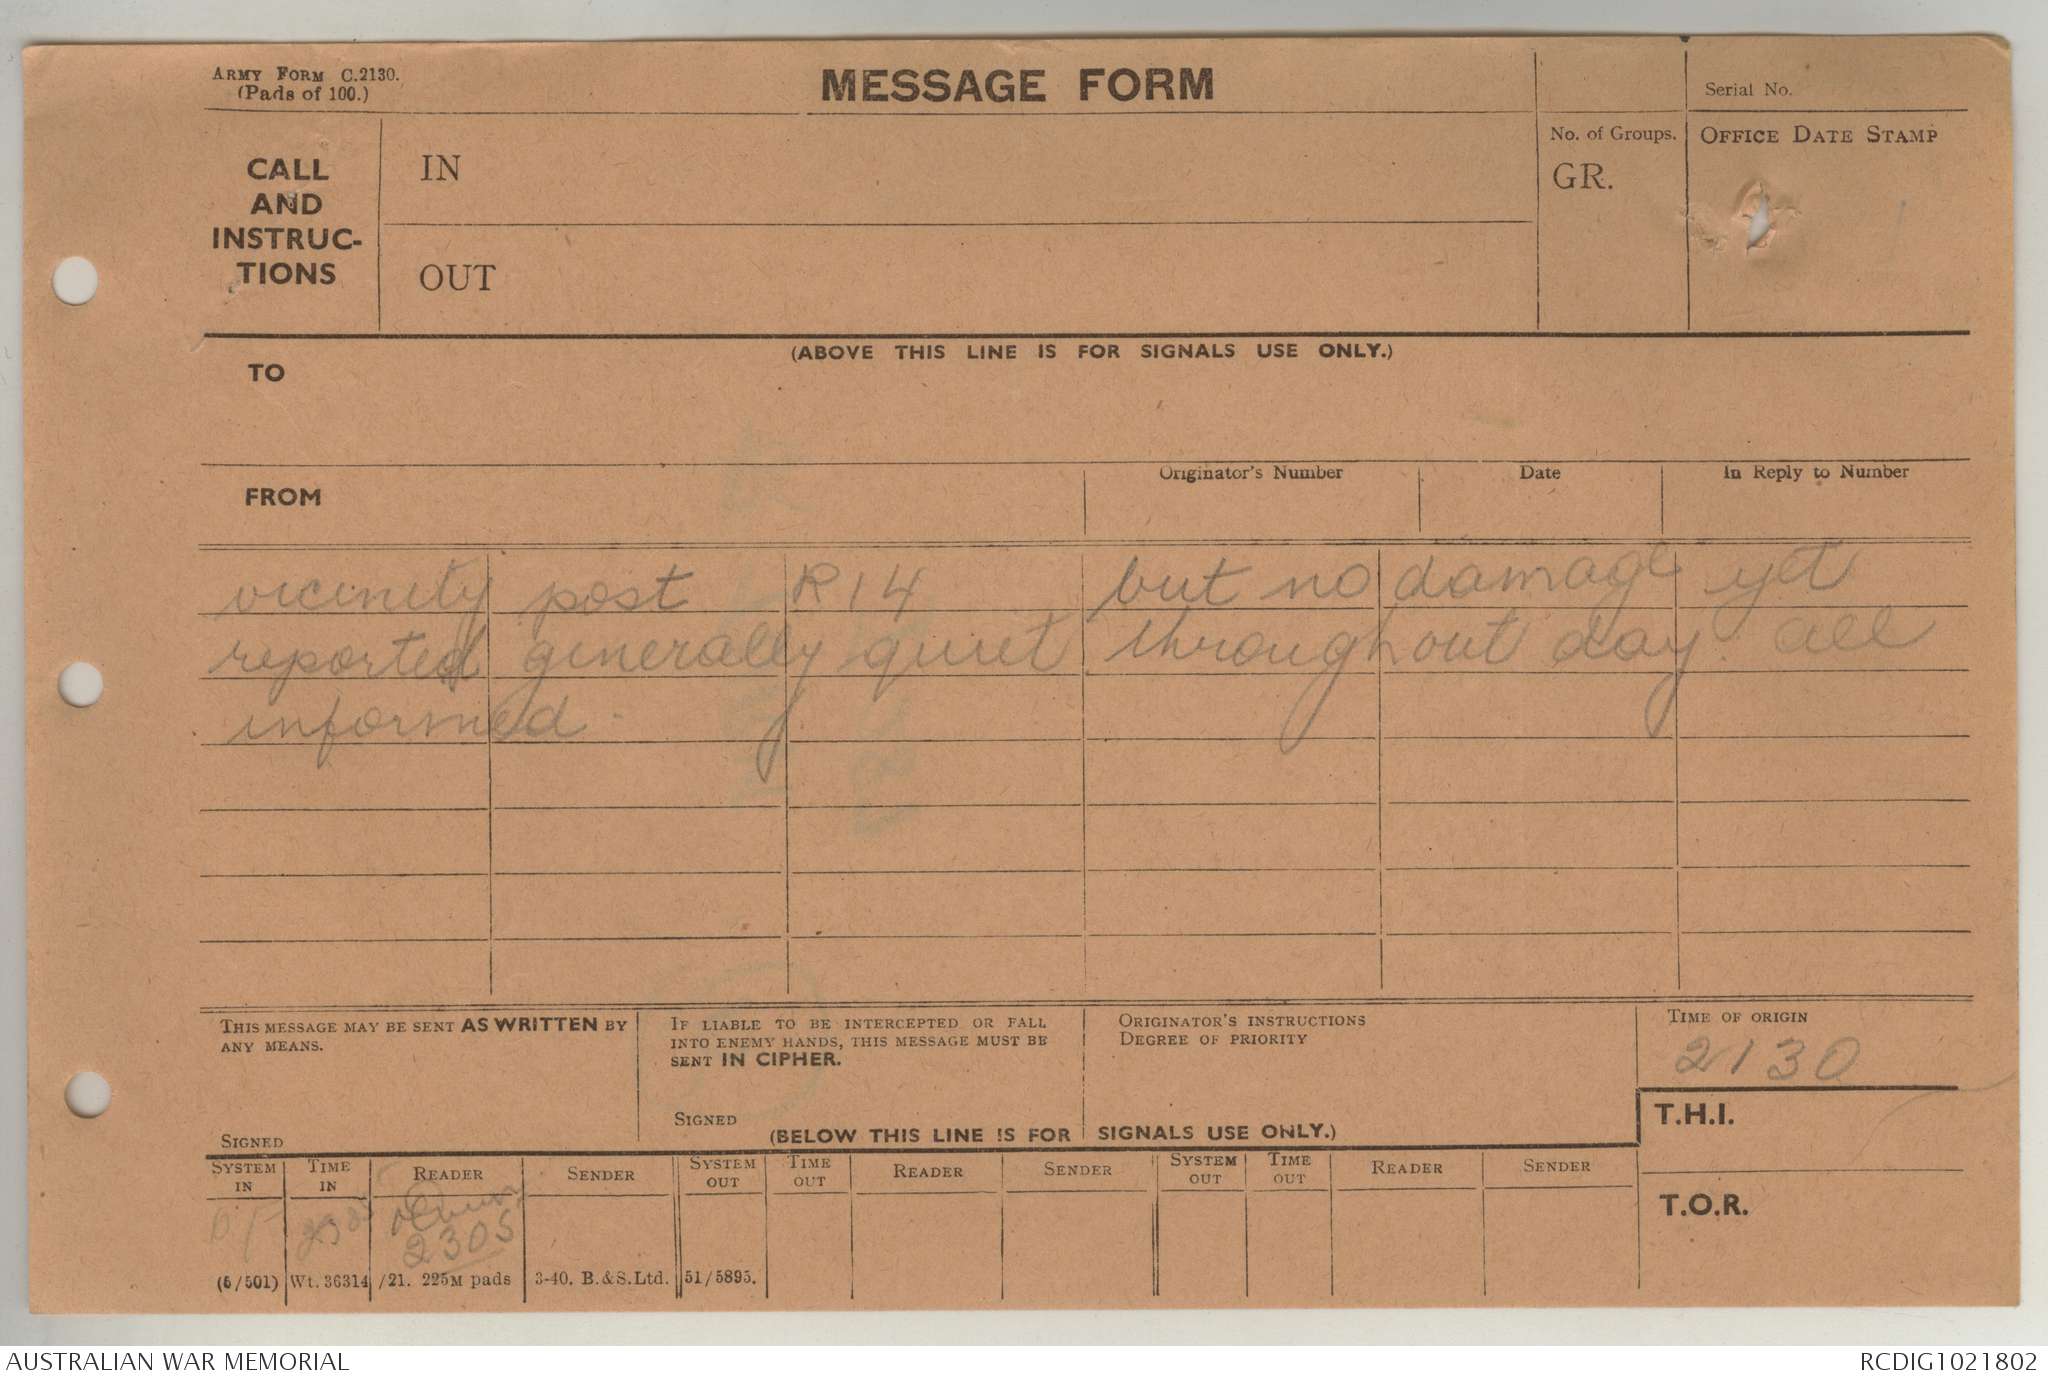 ARMY FORM C.2130.
(Pads of 100.)
MESSAGE FORM
Serial No.
CALL
AND
INSTRUC-
TIONS
IN
OUT
No. of Groups.
GR.
OFFICE DATE STAMP
(ABOVE THIS LINE IS FOR SIGNALS USE ONLY.)
TO
FROM
Originator's Number
Date
In Reply to Number
vicinity post R14 but no damage yet
reported generally quiet throughout day. all
informed.
THIS MESSAGE MAY BE SENT AS WRITTEN BY
ANY MEANS.
SIGNED
IF LIABLE TO BE INTERCEPTED OR FALL
INTO ENEMY HANDS, THIS MESSAGE MUST BE
SENT IN CIPHER.
SIGNED
ORIGINATOR'S INSTRUCTIONS
DEGREE OF PRIORITY
TIME OF ORIGIN
2130
T.H.I.
(BELOW THIS LINE IS FOR SIGNALS USE ONLY.)
SYSTEM IN
TIME IN
READER
SENDER
SYSTEM OUT
TIME OUT
READER
SENDER
SYSTEM OUT
TIME OUT
READER
SENDER
T.O.R.
2305
(5/501) Wt. 36314/21. 225M pads 3-40. B.&S.Ltd. 51/5895.
AUSTRALIAN WAR MEMORIAL
RCDIG1021802